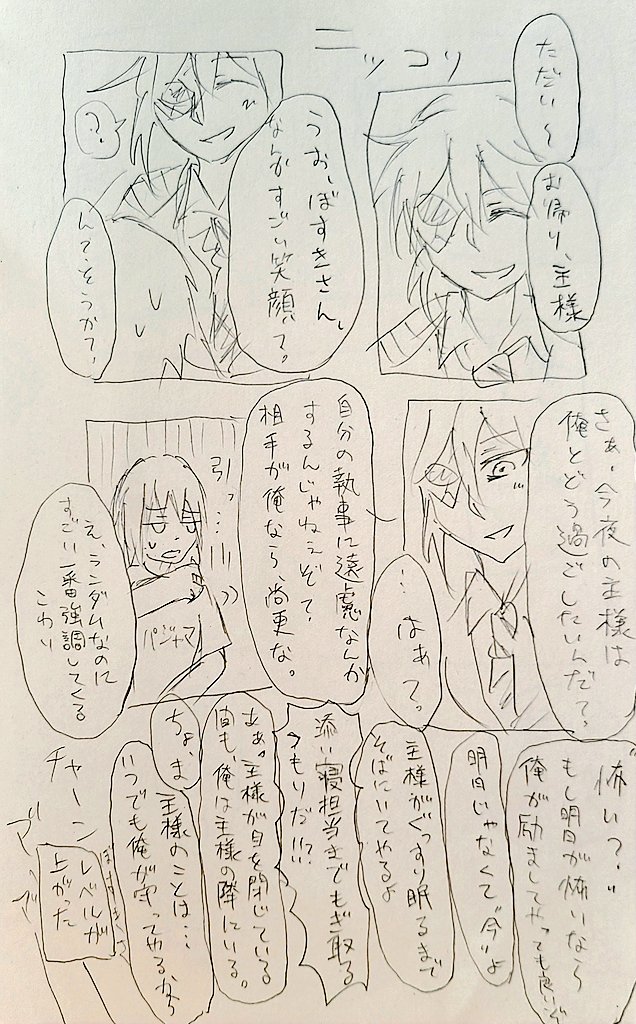 ニッコリ
ただい〜
お帰り、主様
うお、ぼすきさん、
なんかすごい笑顔て。
？
んて、そうかて、
さぁ、今夜の主様は
俺とどう過ごしたいんだて。
…はぁて。
自分の執事に遠慮なんか
するんじゃねぇぞて。
相手が俺なら、尚更な。
引っ…
パジャマ
え、ランダムなのに
すごい一番強調してくる。
こわり
"怖い？"
もし明日が怖いなら
俺が励ましてやっても良いぞ
明日じゃなくて"今"よ
主様がぐっすり眠るまで
そばにいてやるよ
添い寝担当までもぎ取る
つもりだ!?!!
あぁ。主様が目を閉じている
間も、俺は主様の隣にいる。
ちょ、ま
主様のことは…
いつでも俺が守ってやるから
チャーン
レベルが
上がった